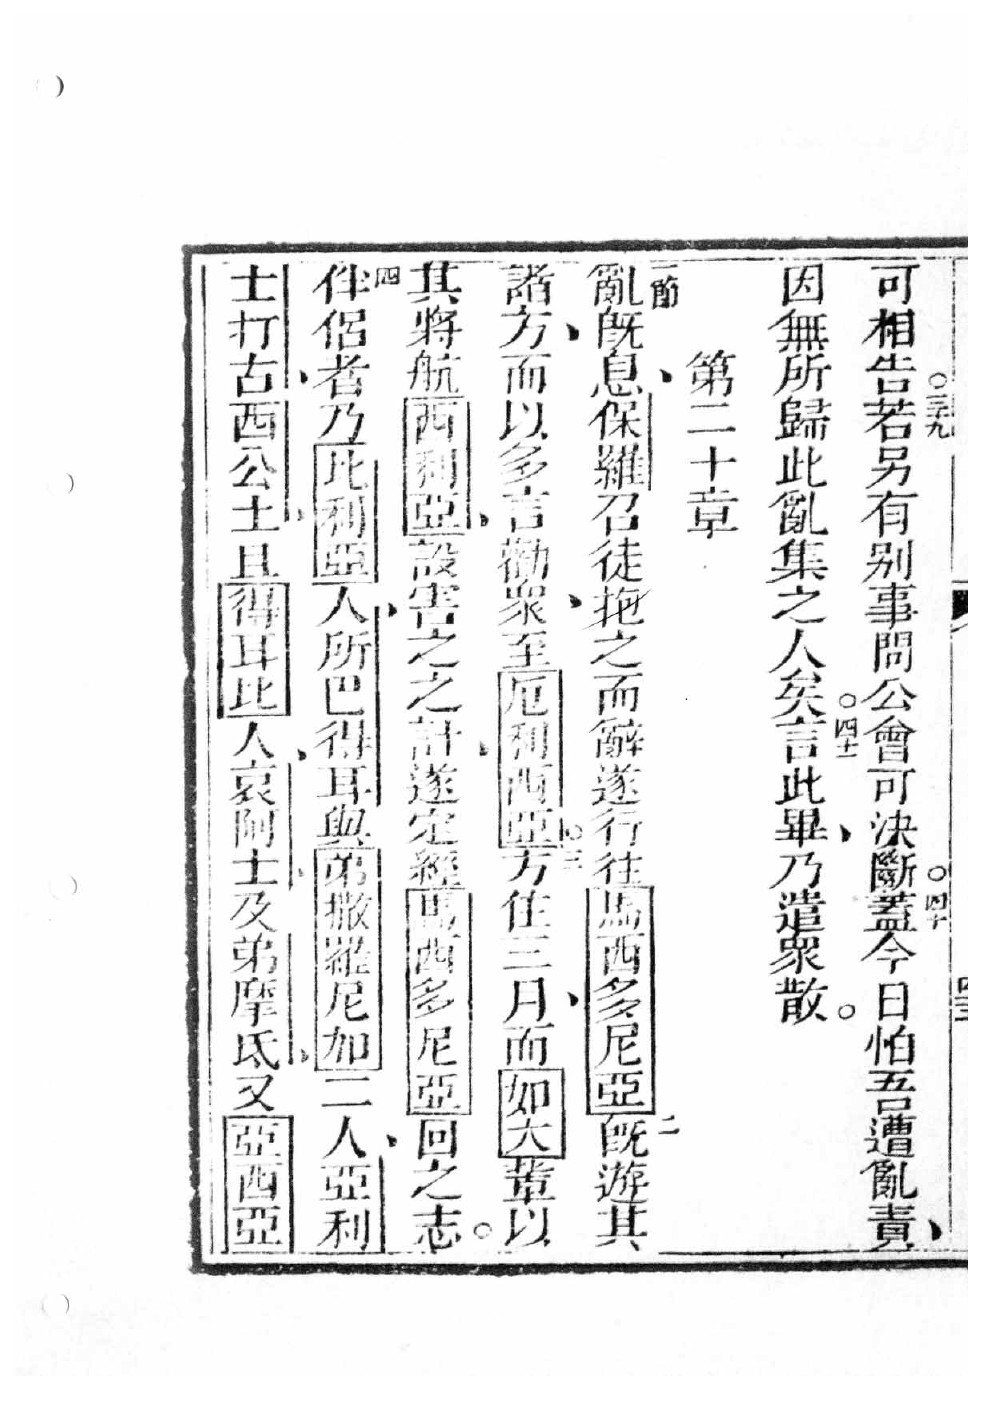 可相告。三九若另有別事問公會可決斷。四十蓋今日怕吾遭亂責、
因無所歸此亂集之人矣。四十一言此畢、乃遣衆散。
第二十章
一節亂既息、保羅召徒抱之而辭遂行往馬西多尼亞二既遊其
諸方、而以多言勸衆、至厄利西亞。三方住三月、而如大輩以
其將航西利亞、設害之之計、遂定經馬西多尼亞回之志。
四伴侶者乃此利亞人、所巴得耳與弟撒羅尼加二人、亞利
士打古、西公士、且得耳比人、哀阿士、及弟摩氐、又亞西亞